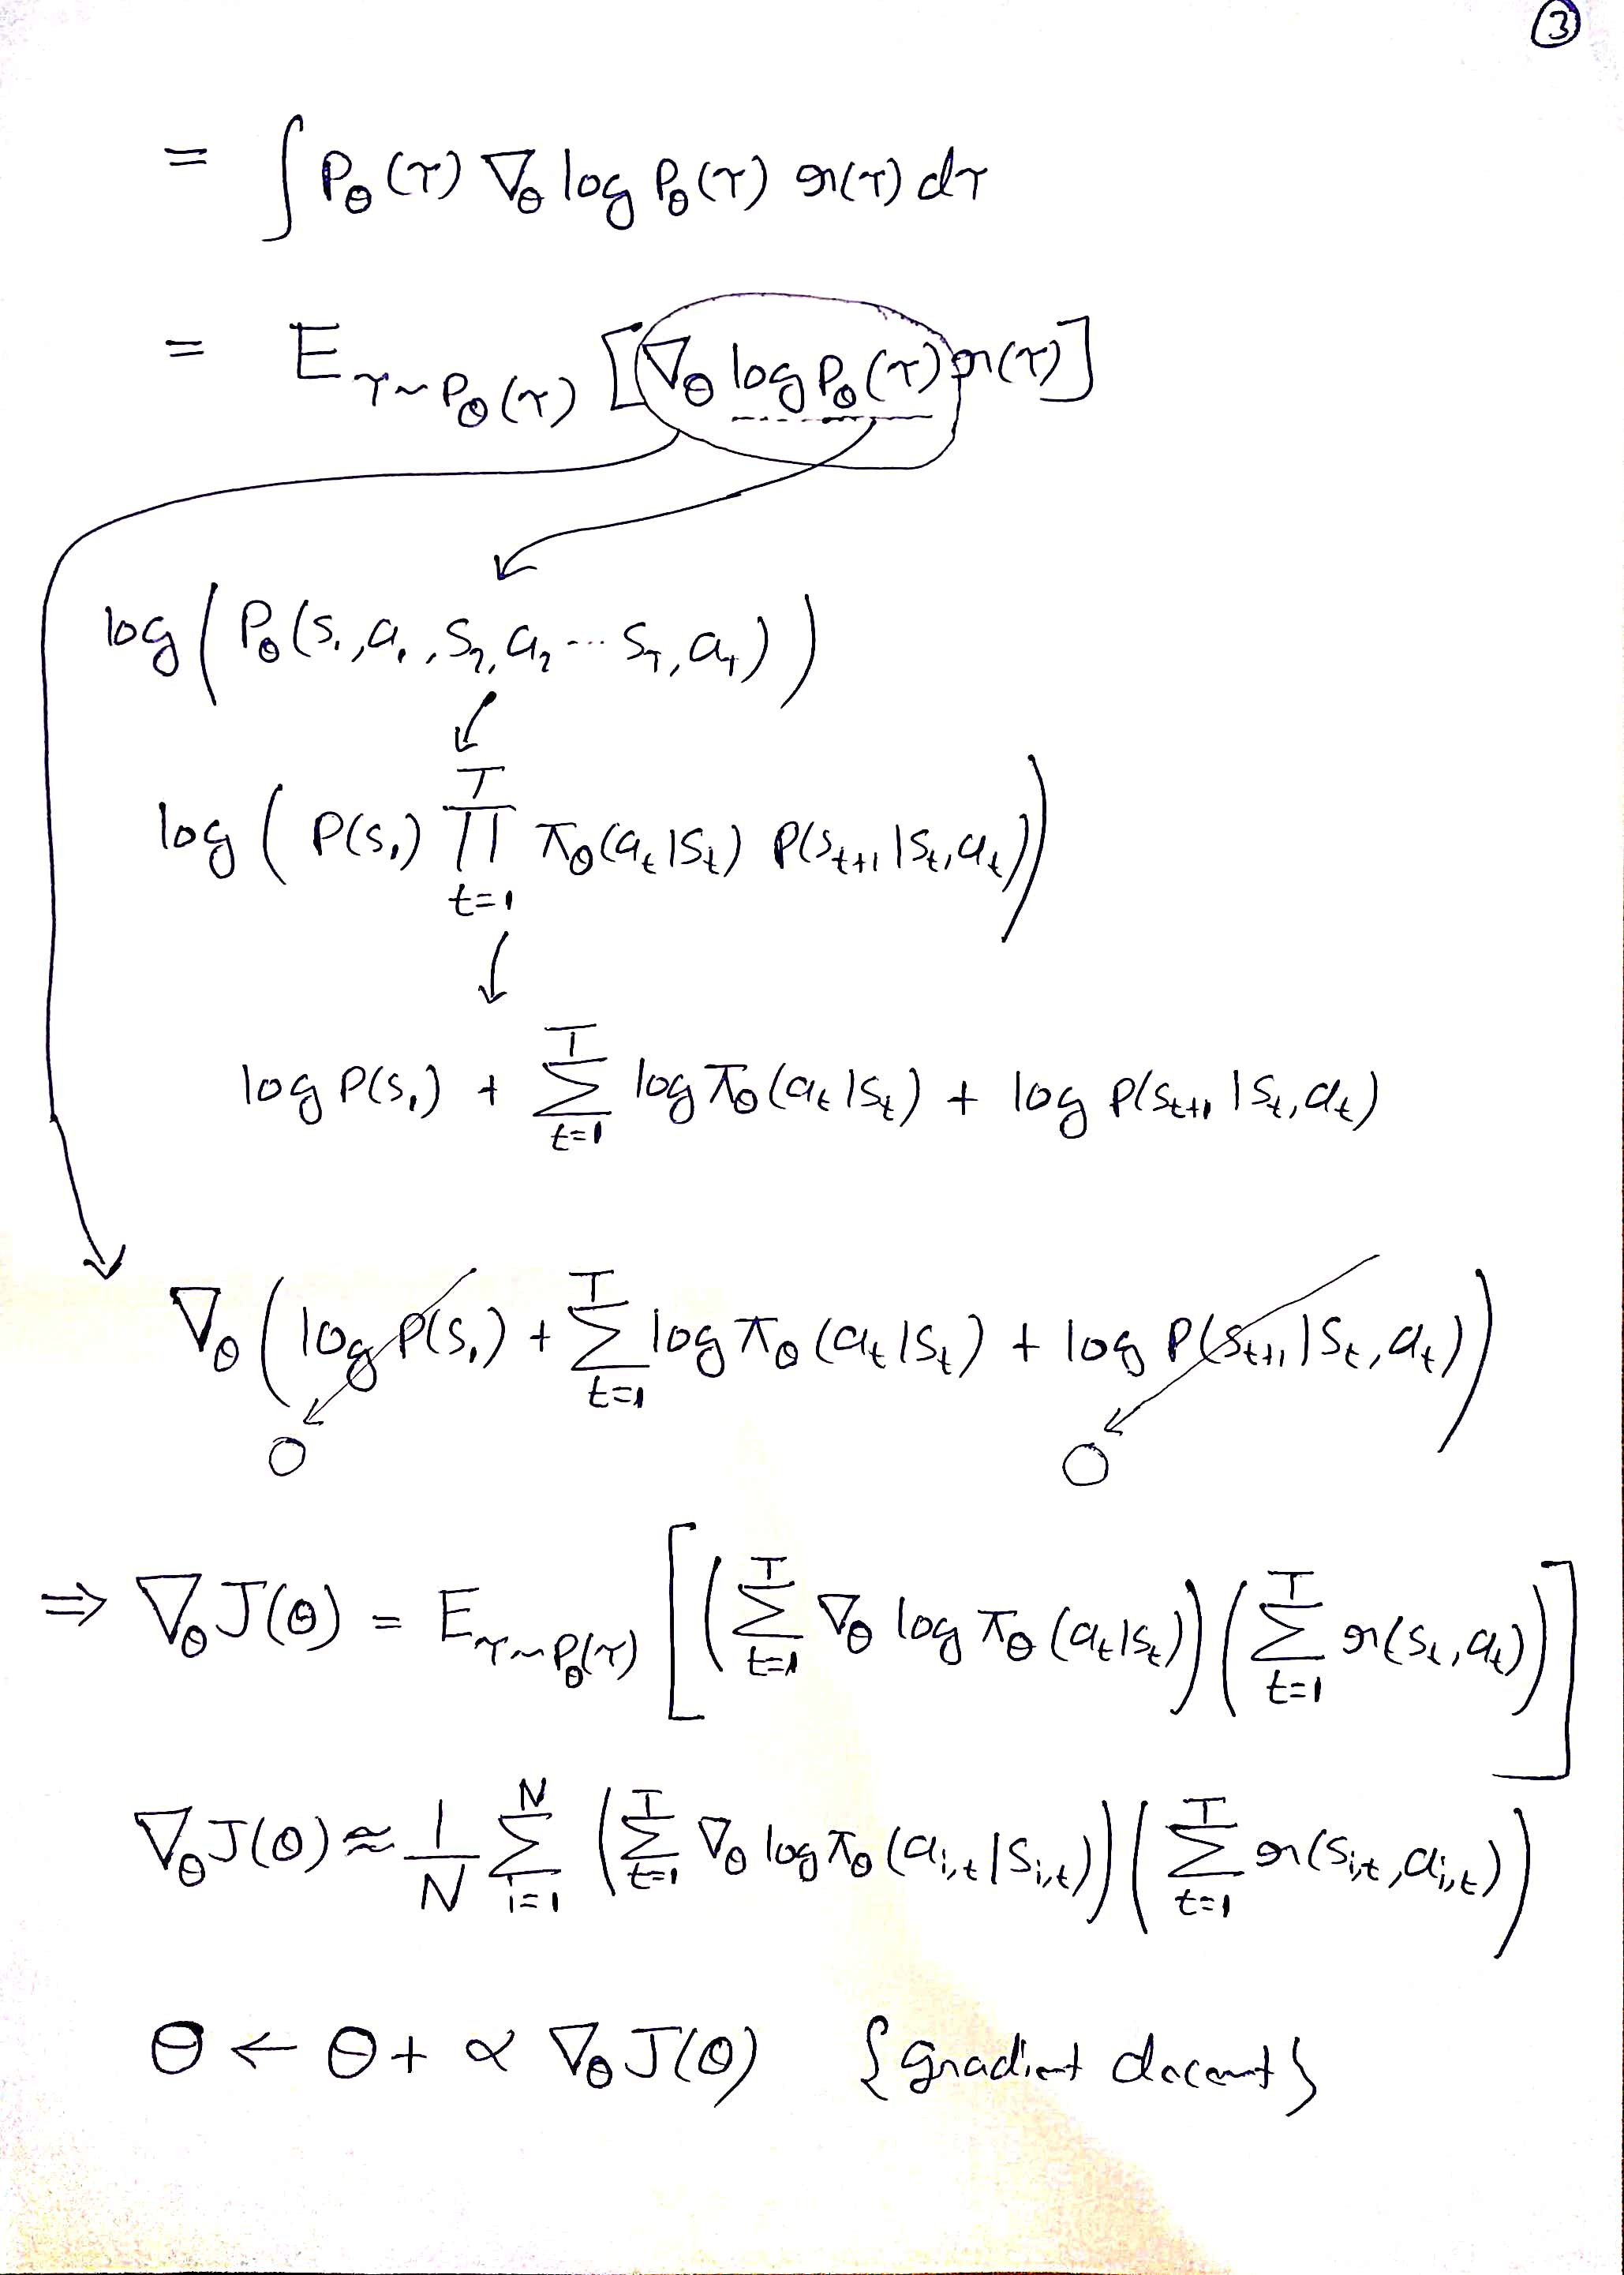 ③
= ∫ P_θ(τ) ∇_θ log P_θ(τ) r(τ) dτ
= E_{τ∼P_θ(τ)} [∇_θ log P_θ(τ) r(τ)]
log ( P_θ(s_1, a_1, s_2, a_2 ... s_T, a_T) )
log ( P(s_1) ∏_{t=1}^{T} π_θ(a_t|s_t) P(s_{t+1}|s_t, a_t) )
log P(s_1) + ∑_{t=1}^{T} log π_θ(a_t|s_t) + log P(s_{t+1}|s_t, a_t)
∇_θ ( log P(s_1) + ∑_{t=1}^{T} log π_θ(a_t|s_t) + log P(s_{t+1}|s_t, a_t) )
0 0
⇒ ∇_θ J(θ) = E_{τ∼P_θ(τ)} [ ( ∑_{t=1}^{T} ∇_θ log π_θ(a_t|s_t) ) ( ∑_{t=1}^{T} r(s_t, a_t) ) ]
∇_θ J(θ) ≈ 1/N ∑_{i=1}^{N} ( ∑_{t=1}^{T} ∇_θ log π_θ(a_{i,t}|s_{i,t}) ) ( ∑_{t=1}^{T} r(s_{i,t}, a_{i,t}) )
θ ← θ + α ∇_θ J(θ) {gradient